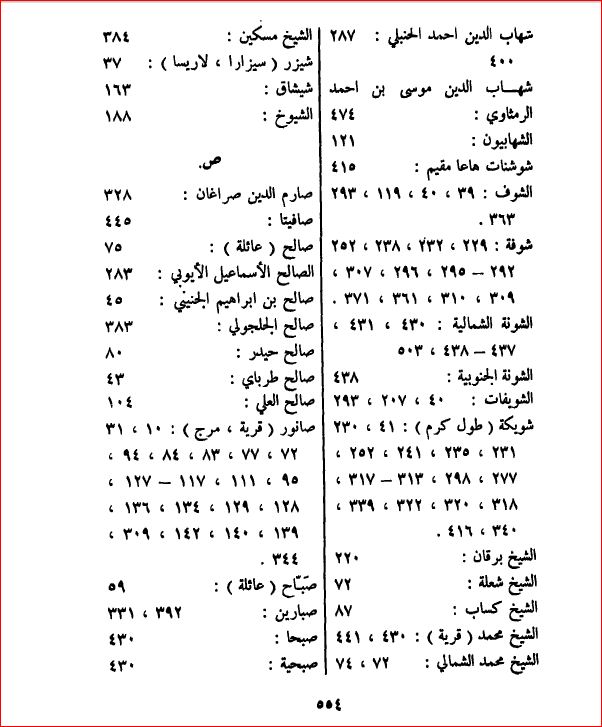 شهاب الدين احمد الحنبلي : ٢٨٧
٤٠٠
شهـــاب الدين موسى بن احمد
الرمثاوي : ٤٧٤
الشهابيون : ١٢١
شوشنات هاعا مقيم : ٤١٥
الشوف : ٣٩ ، ٤٠ ، ١١٩ ، ٢٩٣
، ٣٦٣ .
شوفة : ٢٢٩ ، ٢٣٢ ، ٢٣٨ ، ٢٥٢
٢٩٢ – ٢٩٥ ، ٢٩٦ ، ٣٠٧ ،
٣٠٩ ، ٣١٠ ، ٣٦١ ، ٣٧١ .
الشونة الشمالية : ٤٣٠ ، ٤٣١ ،
٤٣٧ – ٤٣٨ ، ٥٠٣
الشونة الجنوبية : ٤٣٨
الشويفات : ٤٠ ، ٢٠٧ ، ٢٩٣
شويكة ( طول كرم ) : ٤١ ، ٢٣٠
٢٣١ ، ٢٣٥ ، ٢٤١ ، ٢٥٢ ،
٢٧٧ ، ٢٩٨ ، ٣١٣ – ٣١٧ ،
٣١٨ ، ٣٢٠ ، ٣٢٢ ، ٣٣٩ ،
٣٤٠ ، ٤١٦ .
الشيخ برقان : ٢٢٠
الشيخ شعلة : ٧٢
الشيخ كساب : ٨٧
الشيخ محمد ( قرية ) : ٤٣٠ ، ٤٤١
الشيخ محمد الشمالي : ٧٢ ، ٧٤
الشيخ مسكين : ٣٨٤
شيزر ( سيزارا ، لاريسا ) : ٣٧
شيشاق : ١٦٣
الشيوخ : ١٨٨
ص.
صارم الدين صراغان : ٣٢٨
صافيتا : ٤٤٥
صالح ( عائلة ) : ٧٥
الصالح الأسماعيل الأيوبي : ٢٨٣
صالح بن ابراهيم الجنيني : ٤٥
صالح الجلجولي : ٣٨٣
صالح حيدر : ٨٠
صالح طرباي : ٤٣
صالح العلي : ١٠٤
صانور ( قرية ، مرج ) : ١٠ ، ٣١
٧٢ ، ٧٧ ، ٨٣ ، ٨٤ ، ٩٤ ،
٩٥ ، ١١١ ، ١١٧ – ١٢٧ ،
١٢٨ ، ١٢٩ ، ١٣٤ ، ١٣٦ ،
١٣٩ ، ١٤٠ ، ١٤٢ ، ٣٠٩ ،
٣٤٤ .
صبّاح ( عائلة ) : ٥٩
صبارين : ٣٩٢ ، ٣٣١
صبحا : ٤٣٠
صبحية : ٤٣٠
٥٥٤